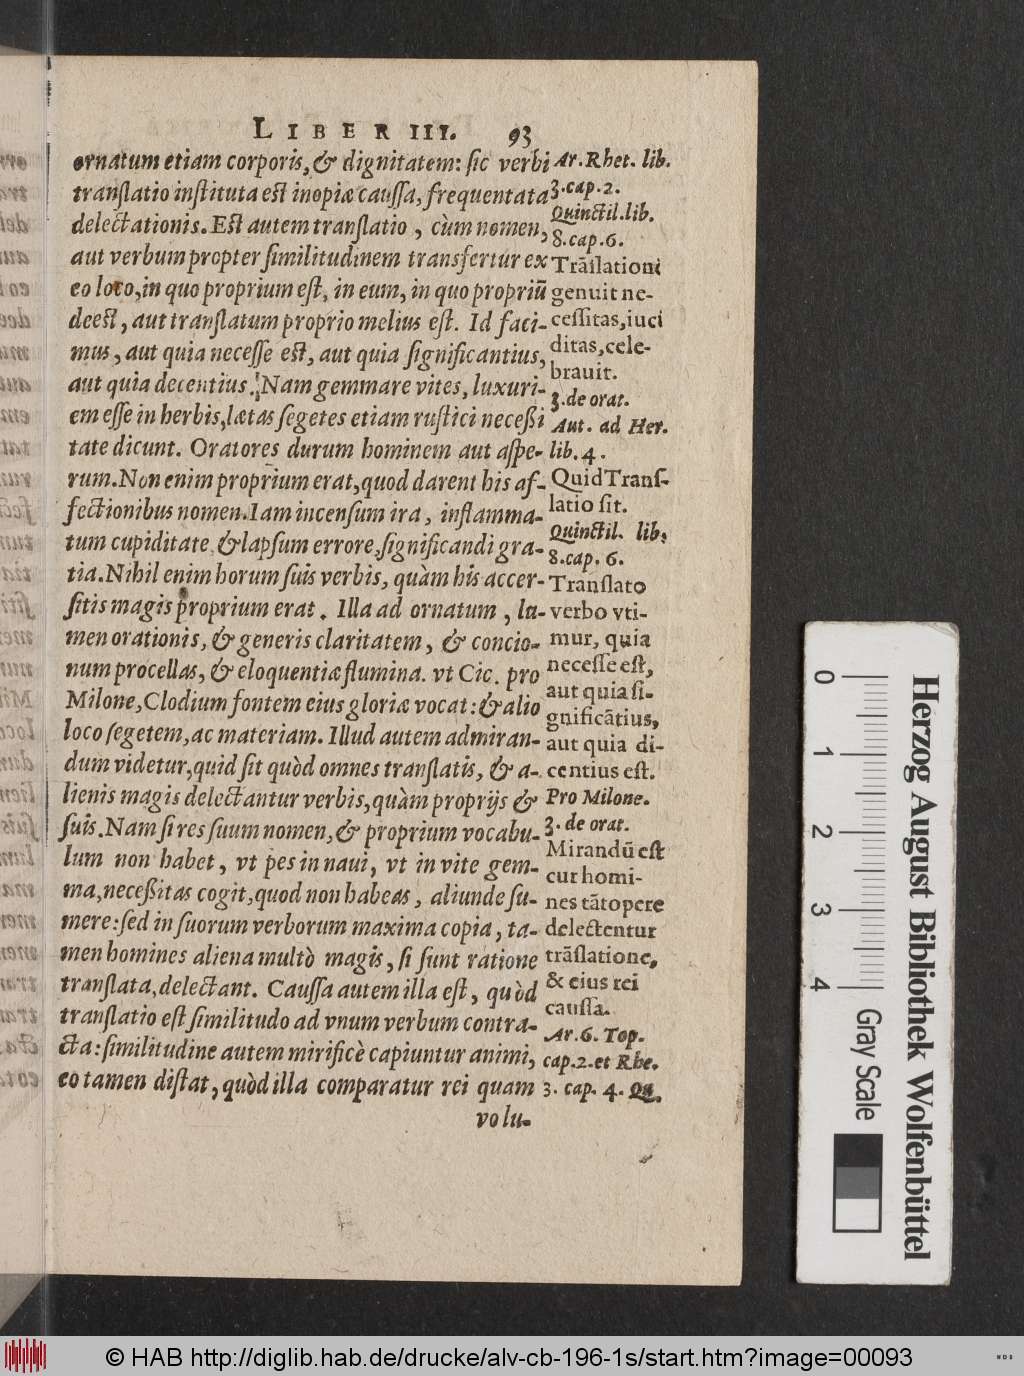 LIBER III. 93
ornatum etiam corporis, & dignitatem: sic verbi
translatio instituta est inopiæ caussa, frequentata
delectationis. Est autem translatio, cùm nomen,
aut verbum propter similitudinem transfertur ex
eo loco, in quo proprium est, in eum, in quo propriũ
deest, aut translatum proprio melius est. Id faci-
mus, aut quia necesse est, aut quia significantius,
aut quia decentius. Nam gemmare vites, luxuri-
em esse in herbis, lætas segetes etiam rustici necessi
tate dicunt. Oratores durum hominem aut aspe-
rum. Non enim proprium erat, quod darent his af-
fectionibus nomen. Iam incensum ira, inflamma-
tum cupiditate, & lapsum errore, significandi gra-
tia. Nihil enim horum suis verbis, quàm his accer-
sitis magis proprium erat. Illa ad ornatum, lu-
men orationis, & generis claritatem, & concio-
num procellas, & eloquentiæ flumina. vt Cic. pro
Milone, Clodium fontem eius gloriæ vocat: & alio
loco segetem, ac materiam. Illud autem admiran-
dum videtur, quid sit quòd omnes translatis, & a-
lienis magis delectantur verbis, quàm proprijs &
suis. Nam si res suum nomen, & proprium vocabu-
lum non habet, vt pes in naui, vt in vite gem-
ma, necessitas cogit, quod non habeas, aliunde su-
mere: sed in suorum verborum maxima copia, ta-
men homines aliena multò magis, si sunt ratione
translata, delectant. Caussa autem illa est, quòd
translatio est similitudo ad vnum verbum contra-
cta: similitudine autem mirificè capiuntur animi,
eo tamen distat, quòd illa comparatur rei quam
volu-
Ar. Rhet. lib.
3. cap. 2.
Quinctil. lib.
8. cap. 6.
Trãslationi
genuit ne-
cessitas, iuci
ditas, cele-
brauit.
3. de orat.
Aut. ad Her.
lib. 4.
Quid Trans-
latio sit.
Quinctil. lib.
8. cap. 6.
Translato
verbo vti-
mur, quia
necesse est,
aut quia si-
gnificãtius,
aut quia di-
centius est.
Pro Milone.
3. de orat.
Mirandũ est
cur homi-
nes tãtopere
delectentur
trãslatione,
& eius rei
caussa.
Ar. 6. Top.
cap. 2. et Rhe.
3. cap. 4. Qu.
Herzog August Bibliothek Wolfenbüttel
0 1 2 3 4
Gray Scale
© HAB http://diglib.hab.de/drucke/alv-cb-196-1s/start.htm?image=00093